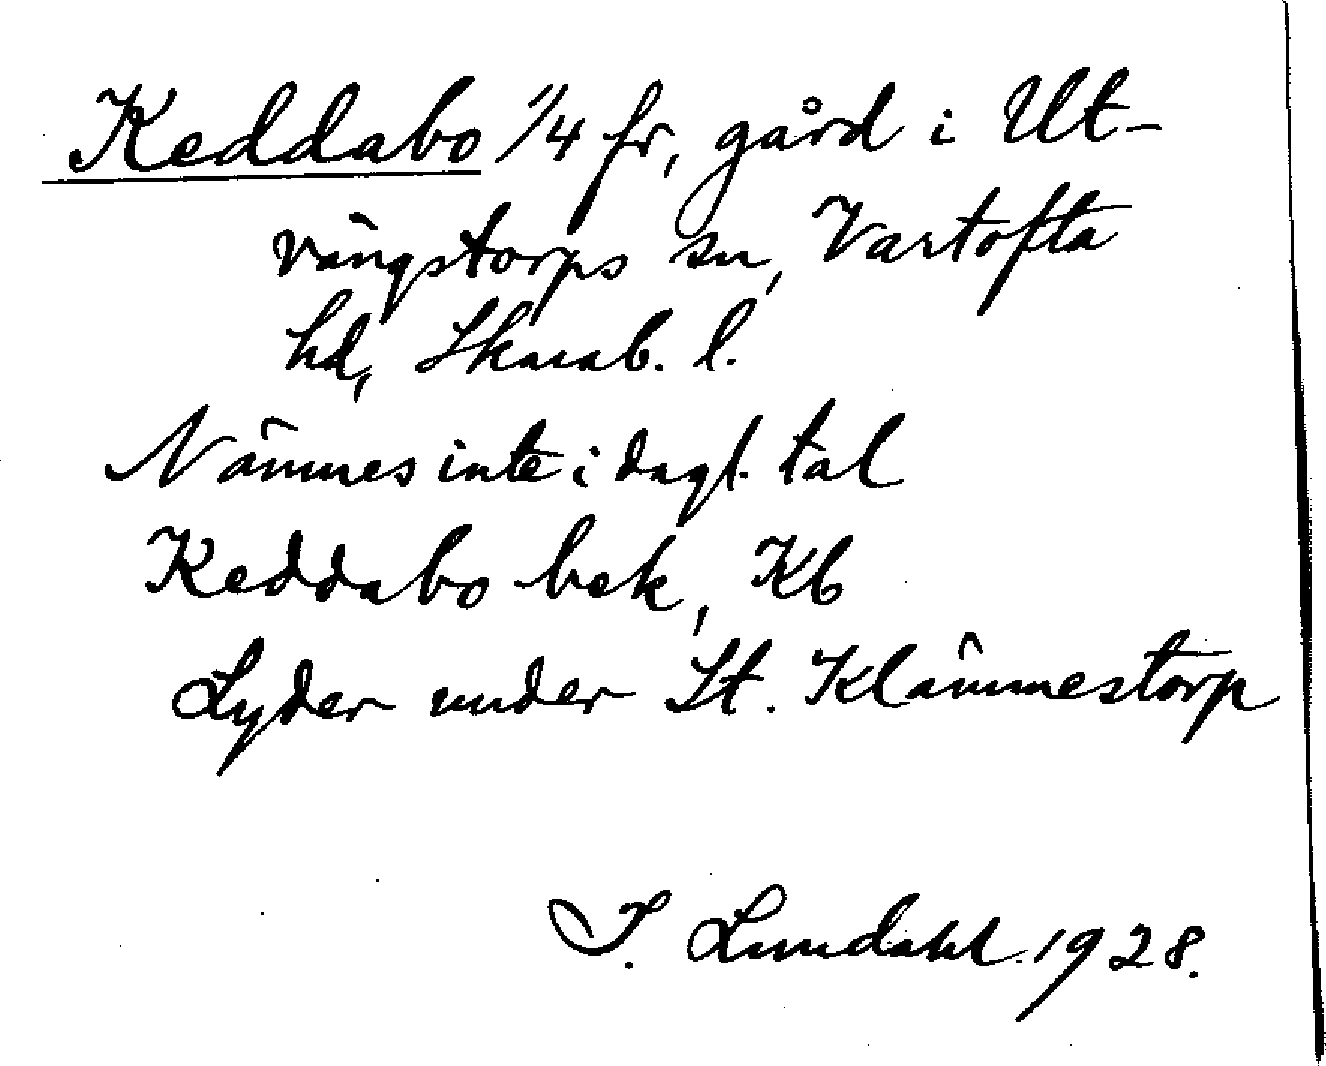 Keddabo 1/4 fr, gård i Ut-
vängstorps sn, Vartofta
hd, Skarab. l.
Nämnes inte i dagl. tal
Keddabo bek, Kb
Lyder under St. Klämmestorp
I. Lundahl. 1928.